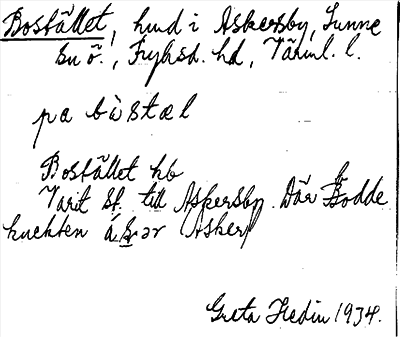 Bostället, hmd i Askersby, Sunne
sn ö., Fryksd. hd, Värml. l.
pa bùstæl
Bostället hb
Varit st. till Askersby. Där bodde
knekten áskər (Asker)
Greta Hedin 1934.